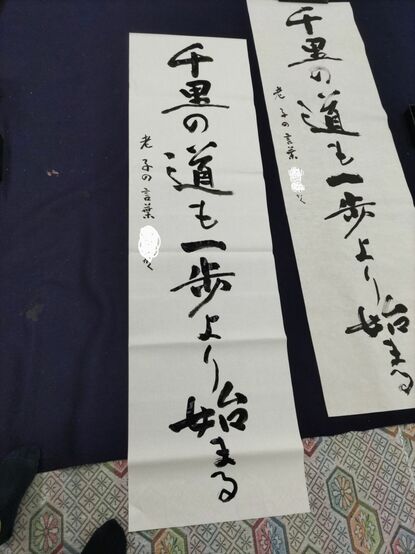 千里の道も一歩より始まる
老子の言葉 かく
千里の道も一歩より始まる
老子の言葉 く